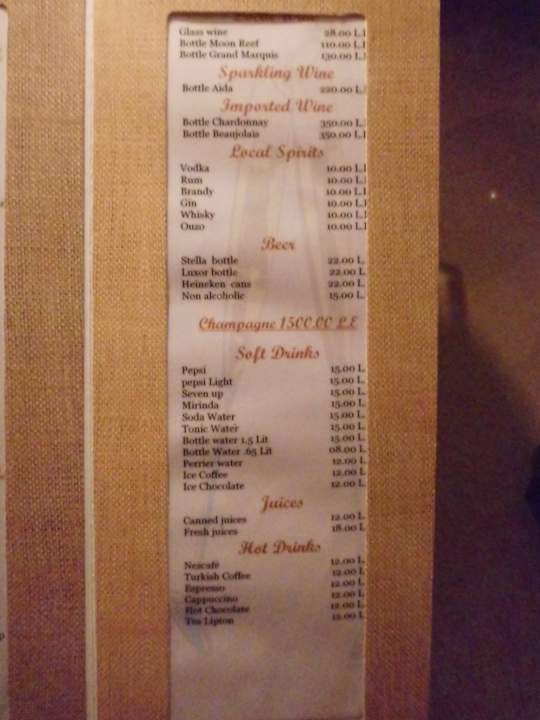 Glass wine 28.00 L.
Bottle Moon Reef 110.00 L.
Bottle Grand Marquis 130.00 L.
Sparkling Wine
Bottle Aida 220.00 L.
Imported Wine
Bottle Chardonnay 350.00 L.
Bottle Beaujolais 350.00 L.
Local Spirits
Vodka 10.00 L.
Rum 10.00 L.
Brandy 10.00 L.
Gin 10.00 L.
Whisky 10.00 L.
Ouzo 10.00 L.
Beer
Stella bottle 22.00 L.
Luxor bottle 22.00 L.
Heineken cans 22.00 L.
Non alcoholic 15.00 L.
Champagne 1500.00 L.E
Soft Drinks
Pepsi 15.00 L
pepsi Light 15.00 L.
Seven up 15.00 L.
Mirinda 15.00 L.
Soda Water 15.00 L.
Tonic Water 15.00 L.
Bottle water 1.5 Lit 15.00 L
Bottle Water .65 Lit 08.00 L.
Perrier water 12.00 L.
Ice Coffee 12.00 L.
Ice Chocolate 12.00 L.
Juices
Canned juices 12.00 L
Fresh juices 18.00 L
Hot Drinks
Nescafé 12.00 L.
Turkish Coffee 12.00 L
Espresso 12.00 L
Cappuccino 12.00 L
Hot Chocolate 12.00 L
Tea Lipton 12.00 L